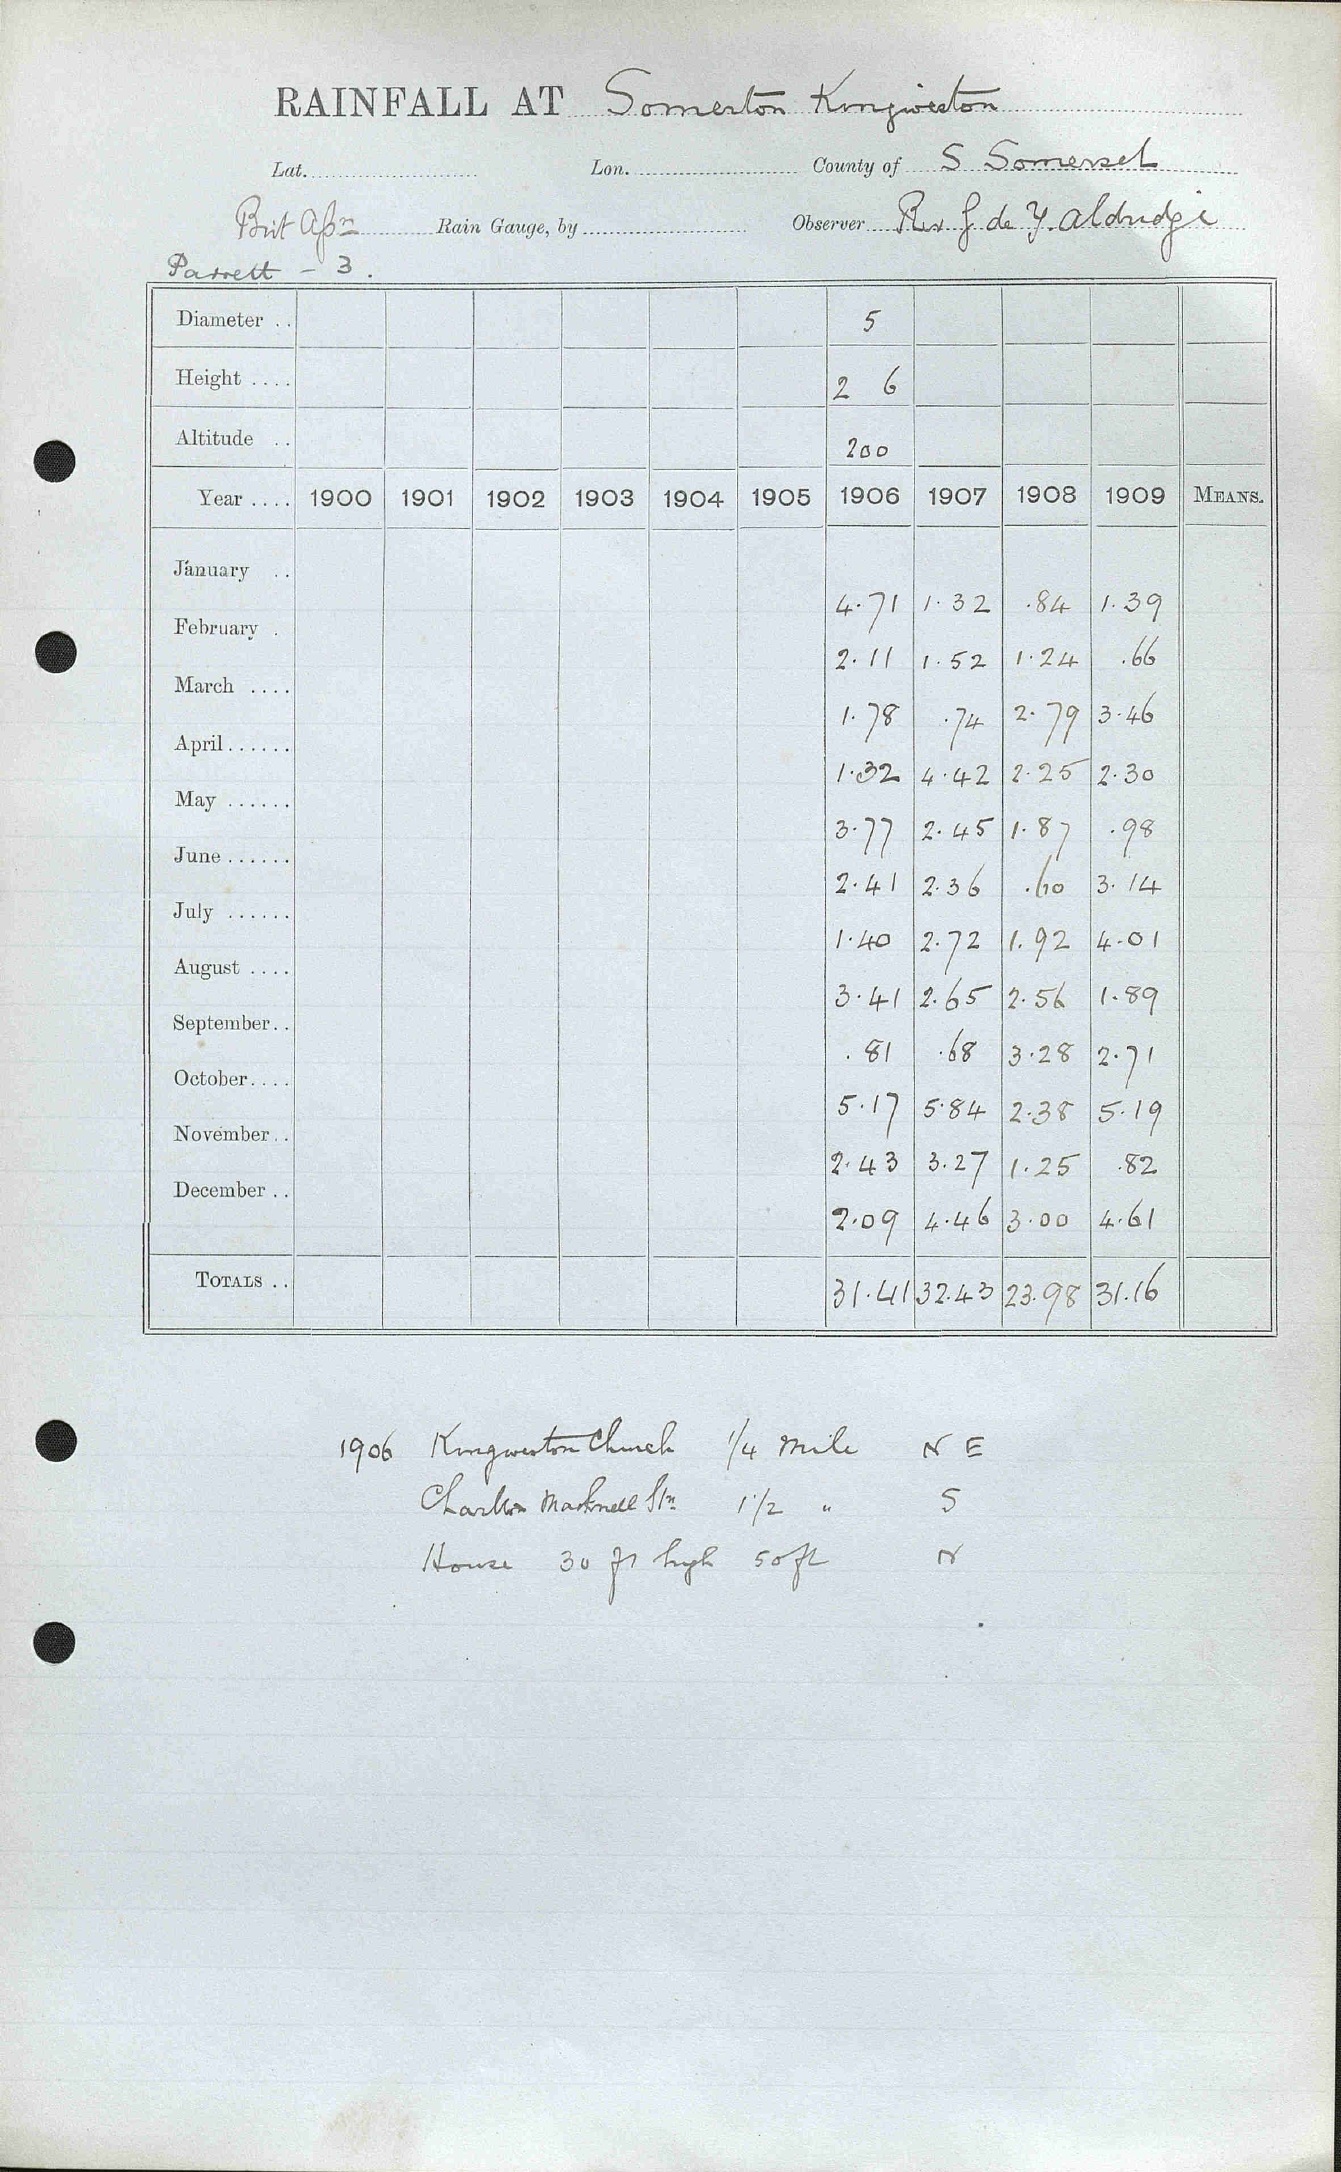 RAINFALL AT Somerton Kingweston
Lat. Lon. County of S Somerset
Brit Assn Rain Gauge, by Observer Rev G de Y. Aldridge
Parrett - 3.
Diameter .. 5
Height .... 2 6
Altitude .. 200
Year .... 1900 1901 1902 1903 1904 1905 1906 1907 1908 1909 MEANS.
January .. 4.71 1.32 .84 1.39
February . 2.11 1.52 1.24 .66
March .... 1.78 .74 2.79 3.46
April ...... 1.32 4.42 2.25 2.30
May ...... 3.77 2.45 1.87 .98
June ...... 2.41 2.36 .60 3.14
July ...... 1.40 2.72 1.92 4.01
August .... 3.41 2.65 2.56 1.89
September.. .81 .68 3.28 2.71
October.... 5.17 5.84 2.38 5.19
November.. 2.43 3.27 1.25 .82
December .. 2.09 4.46 3.00 4.61
TOTALS .. 31.41 32.43 23.98 31.16
1906 Kingweston Church 1/4 Mile N E
Charlton Mackrell Stn 1 1/2 " S
House 30 ft high 50 ft N